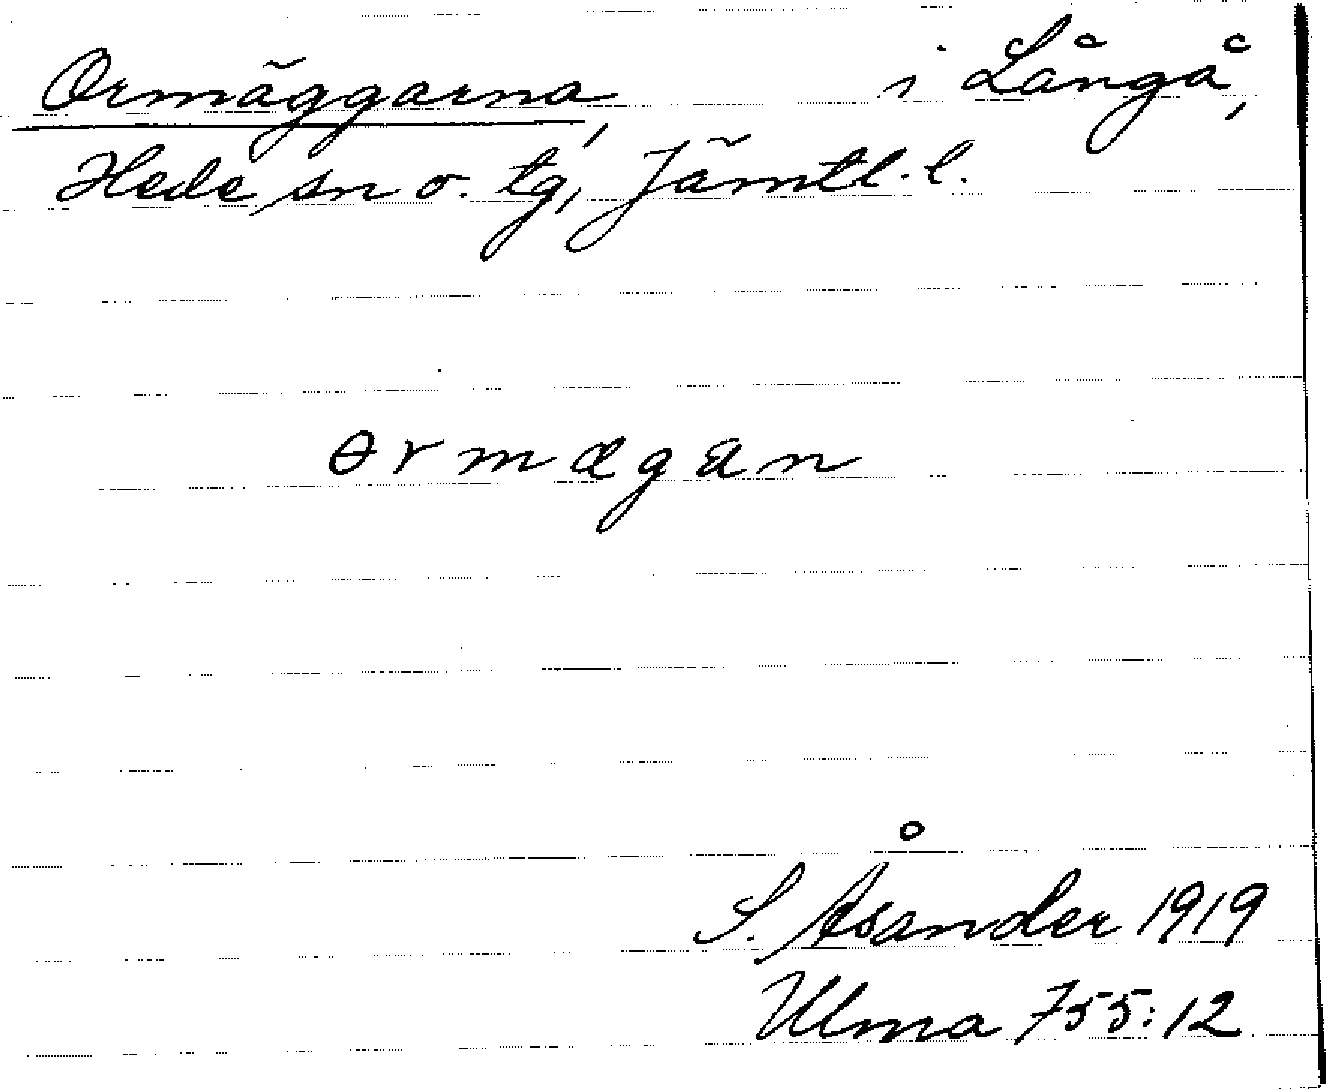 Ormäggarna, i Långå,
Hede sn o. tg, Jämtl. l.
ɵrmægan
S. Åsander 1919
Ulma 755:12